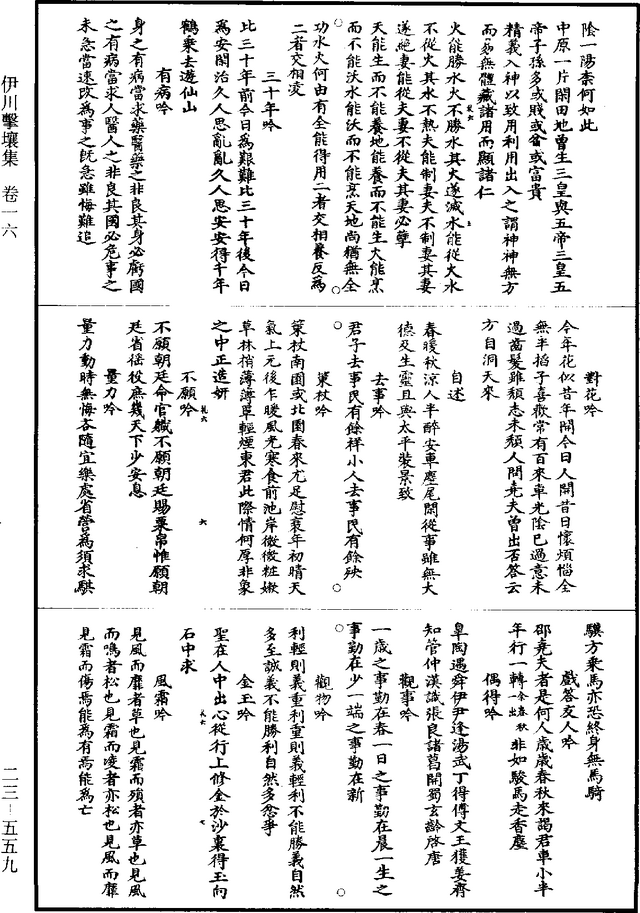 伊川擊壤集 卷一六
陰一陽柰何如此
中原一片閑田地曾生三皇與五帝三皇五
帝子孫多或賤或貧或富貴
精義入神以致用利用出入之謂神神無方
而易無體藏諸用而顯諸仁
火能勝水火不勝水其火遂滅水能從火水
不從火其水不熱夫能制妻夫不制妻其妻
遂絕妻能從夫妻不從夫其妻必孽
天能生而不能養地能養而不能生火能烹
而不能沃水能沃而不能烹天地尚猶無全
功水火何由有全能得用二者交相養反爲
二者交相凌
三十年吟
比三十年前今日爲艱難比三十年後今日
爲安閑治久人思亂亂久人思安安得千年
鶴乘去遊仙山
有病吟
身之有病當求藥醫藥之非良其身必虧國
之有病當求人醫人之非良其國必危事之
未急當速改爲事之旣急雖悔難追
對花吟
今年花似昔年開今日人開昔日懷煩惱全
無半掐子喜歡常有百來車光陰已過意未
過齒髮雖頹志未頹人問堯夫曾出否荅云
方自洞天來
自述
春暖秋涼人半醉安車塵尾閑從事雖無大
德及生靈且與太平裝景致
去事吟
君子去事民有餘祥小人去事民有餘殃
策杖吟
策杖南園或北園春來尤足慰衰年初晴天
氣上元後乍暖風光寒食前池岸微微粧嫩
草林梢薄薄罩輕煙東君此際情何厚非象
之中正造妍
不願吟
不願朝廷命官職不願朝廷賜粟帛惟願朝
廷省徭役庶幾天下少安息
量力吟
量力動時無悔吝隨宜樂處省營爲須求騏
驥方乘馬亦恐終身無馬騎
戲荅友人吟
邵堯夫者是何人歲歲春秋來謁君車小半
年行一轉余出春秋非如駿馬走香塵
偶得吟
皐陶遇舜伊尹逢湯武丁得傅文王獲姜齊
知管仲漢識張良諸葛開蜀玄齡啓唐
觀事吟
一歲之事勤在春一日之事勤在晨一生之
事勤在少一端之事勤在新
觀物吟
利輕則義重利重則義輕利不能勝義自然
多至誠義不能勝利自然多忿爭
金玉吟
聖在人中出心從行上修金於沙裏得玉向
石中求
風霜吟
見風而靡者草也見霜而殞者亦草也見風
而鳴者松也見霜而凌者亦松也見風而靡
見霜而傷焉能爲有焉能爲亡
二三–五五九